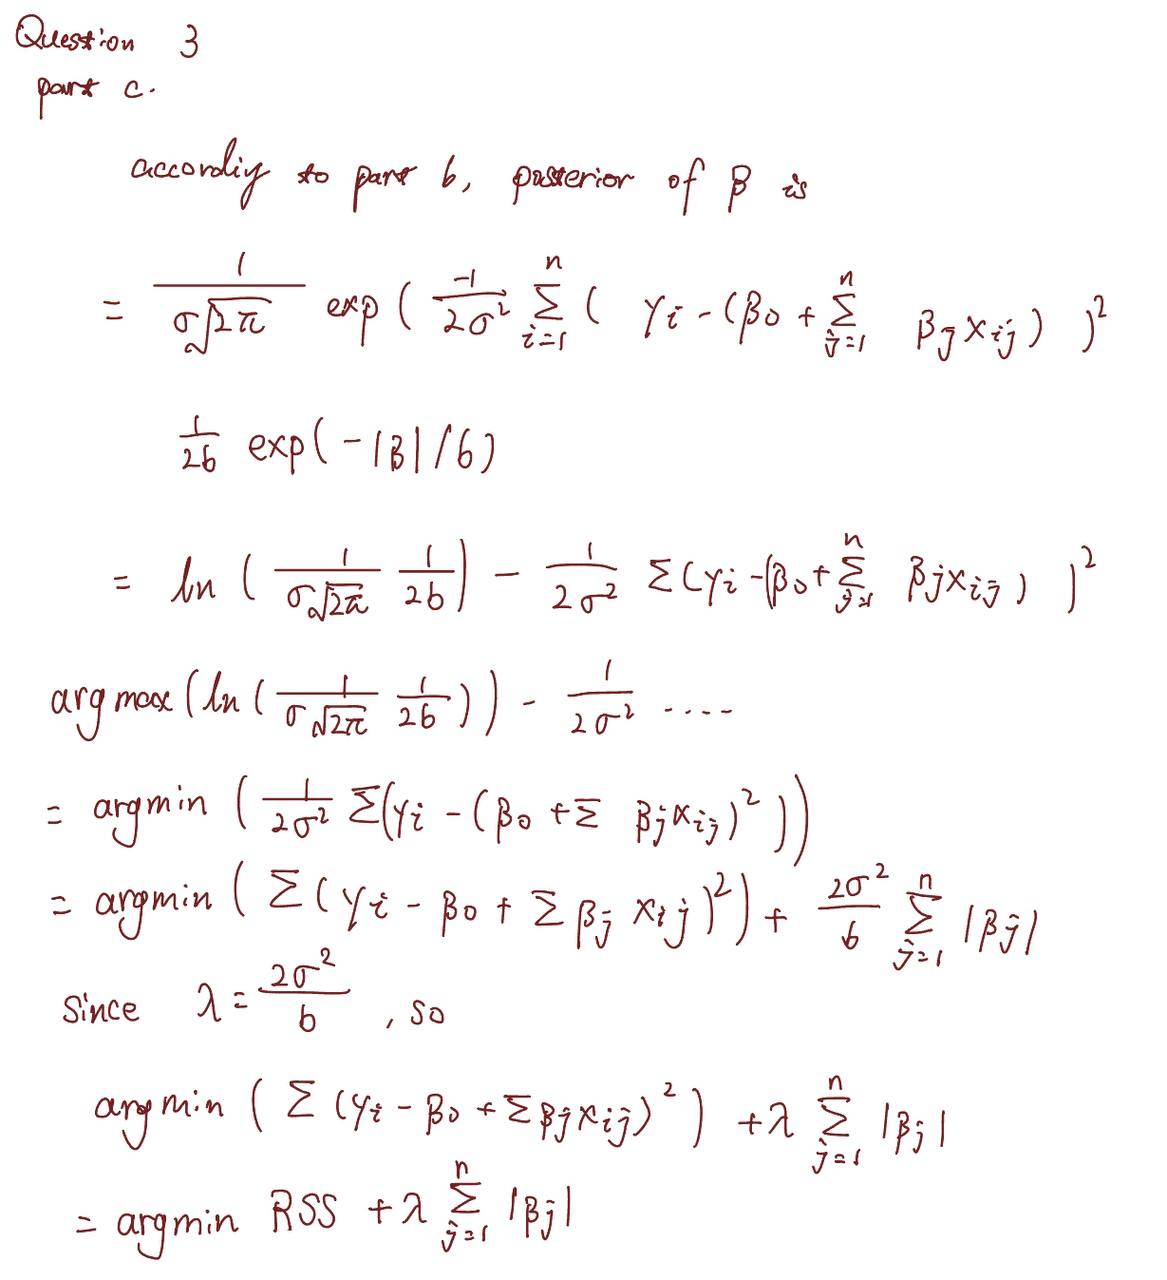 Question 3
part c.
accordiy to part b, posterior of β is
= 1/(σ√2π) exp( -1/2σ² Σ_{i=1}^{n} ( Yi - (β0 + Σ_{j=1}^{n} βj Xij) )²
1/2b exp(-|β|/b)
= ln ( 1/(σ√2π) 1/2b ) - 1/2σ² Σ(Yi -(β0 + Σ_{j=1}^{n} βj xij) )²
arg max (ln ( 1/(σ√2π) 1/2b )) - 1/2σ² ....
= argmin ( 1/2σ² Σ(Yi - (β0 + Σ βj xij)² ))
= argmin ( Σ (Yi - β0 + Σ βj Xij)² ) + 2σ²/b Σ_{j=1}^{n} |βj|
Since λ = 2σ²/b , so
argmin ( Σ (Yi - β0 + Σ βj Xij)² ) + λ Σ_{j=1}^{n} |βj|
= argmin RSS + λ Σ_{j=1}^{n} |βj|